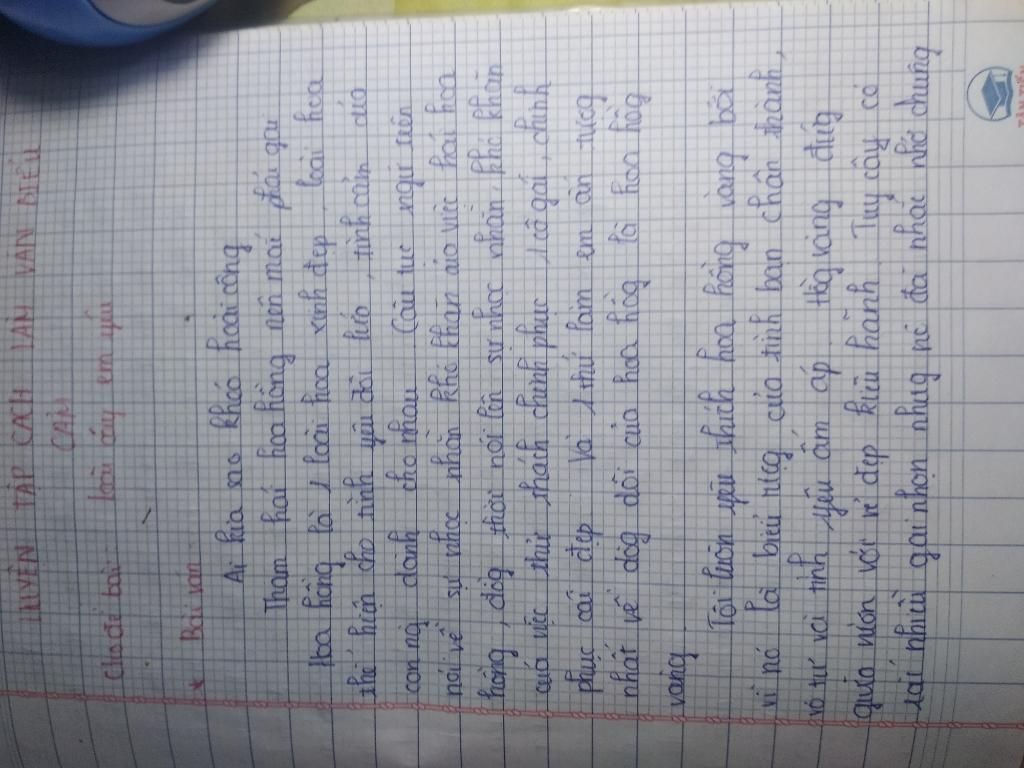 LUYỆN TẬP CÁCH LÀM VĂN BIỂU
CẢM
Cho đề bài: Loài cây em yêu
* Bài văn:
Ai kia sao khó hoài công
Tham hái hoa hồng nên mới phải gai
Hoa hồng là 1 loài hoa xinh đẹp, loài hoa
thể hiện cho tình yêu đôi lứa, tình cảm do
con ng dành cho nhau. Câu tục ngữ trên
nói về sự nhọc nhằn khó khăn ào việc hái hoa
hồng, đồng thời nói lên sự nhọc nhằn, khó khăn
của việc thử thách chinh phục 1 cô gái, chinh
phục cái đẹp. Và 1 thứ làm em ấn tượng
nhất về dòg dõi của hoa hồg là hoa hồg
vàng
Tôi luôn yêu thích hoa hồng vàng bởi
vì nó là biểu tượg của tình bạn chân thành,
vô tư với tình yêu ấm áp. Hồg vàng đứg
giữa vườn với vẻ đẹp kiêu hãnh. Tuy cây có
rất nhiều gai nhọn nhưg nó đã nhắc nhở chúng